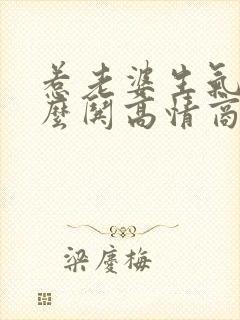 惹老婆生氣
麼関高情商
梁慶梅